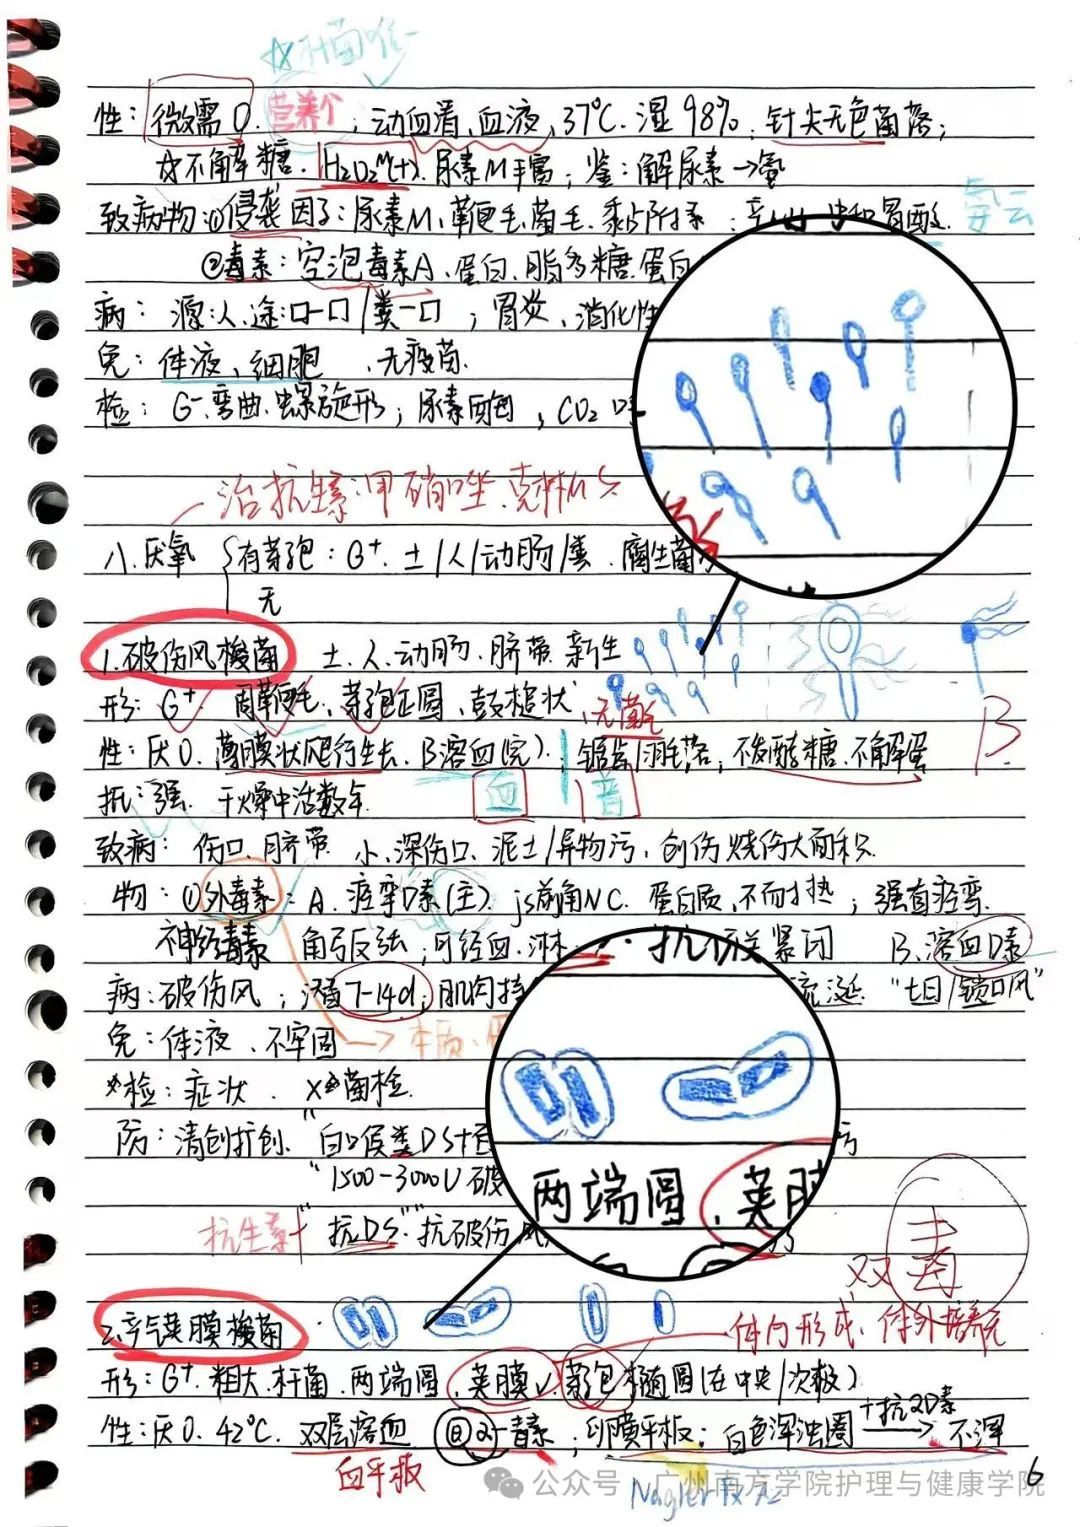 ☆杆菌唯一
性：微需O. 营养个；动血清、血液、37℃. 湿98%. 针尖无色菌落；
☆不解糖. H₂O₂M(+). 尿素M丰富；鉴：解尿素→氨
致病物①侵袭因子：尿素M、鞭毛、菌毛、黏附素
胃酸 氨云
②毒素：空泡毒素A、蛋白、脂多糖、蛋白
病：源：人、途：口-口/粪-口；胃炎、消化性
免：体液、细胞、无疫苗.
检：G⁻、弯曲、螺旋形；尿素 CO₂
治抗生素：甲硝唑、克林M
八、厌氧 有芽孢：G⁺. 土/人/动肠/粪. 腐生菌
无
1.破伤风梭菌 土、人、动肠、脐带. 新生
形：G⁺ 周鞭毛、芽孢正圆、鼓槌状、无菌毛
性：厌O. 薄膜状爬行生长. β溶血(完)；锯齿/羽毛落；不发酵糖. 不解蛋 β
抗：强. 干燥中活数年. 血
致病：伤口、脐带. 小、深伤口、泥土/异物污、创伤烧伤大面积.
物：①外毒素：A. 痉挛D素(主). js前角NC. 蛋白质、不耐热；强直痉挛.
神经毒素 角弓反张；可经血、淋 紧闭 B. 溶血D素
病：破伤风；潜7-14d；肌肉 流涎. “七日/锁口风”
免：体液、不牢固 → 本质
*检：症状. ×菌检.
防：清创扩创. “白口侯类DS
“1500-3000U 破
抗生素+ “抗DS”“抗破伤风
两端圆、荚膜
双毒
2.产气荚膜梭菌 体内形成、体外培养无
形：G⁺. 粗大. 杆菌. 两端圆、荚膜√ 芽包椭圆(在中央/次极)
性：厌O. 42℃. 双层溶血 α-毒素；卵黄平板：白色浑浊圈 +抗αD素 → 不浑
血平板
Nagler
公众号·广州南方学院护理与健康学院
6